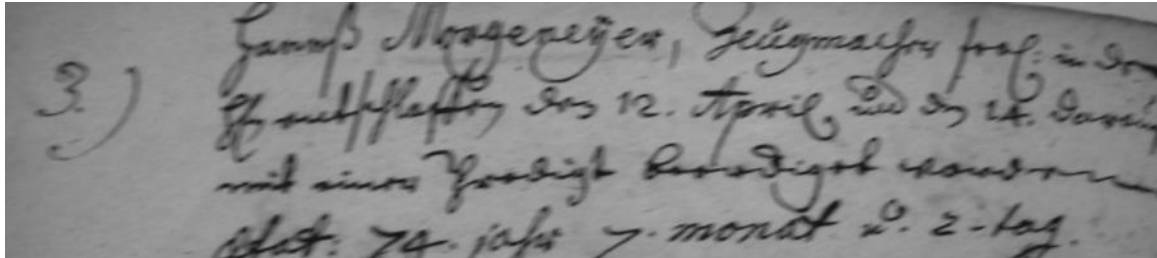 Hannß Morgeneÿer, Zeügmacher seel: in dem
H entschlaffen den 12. April, und den 14. darauf
3.) mit einer Predigt beerdiget worden
Ætat: 74. jahr 7. monat u. 2. tag.